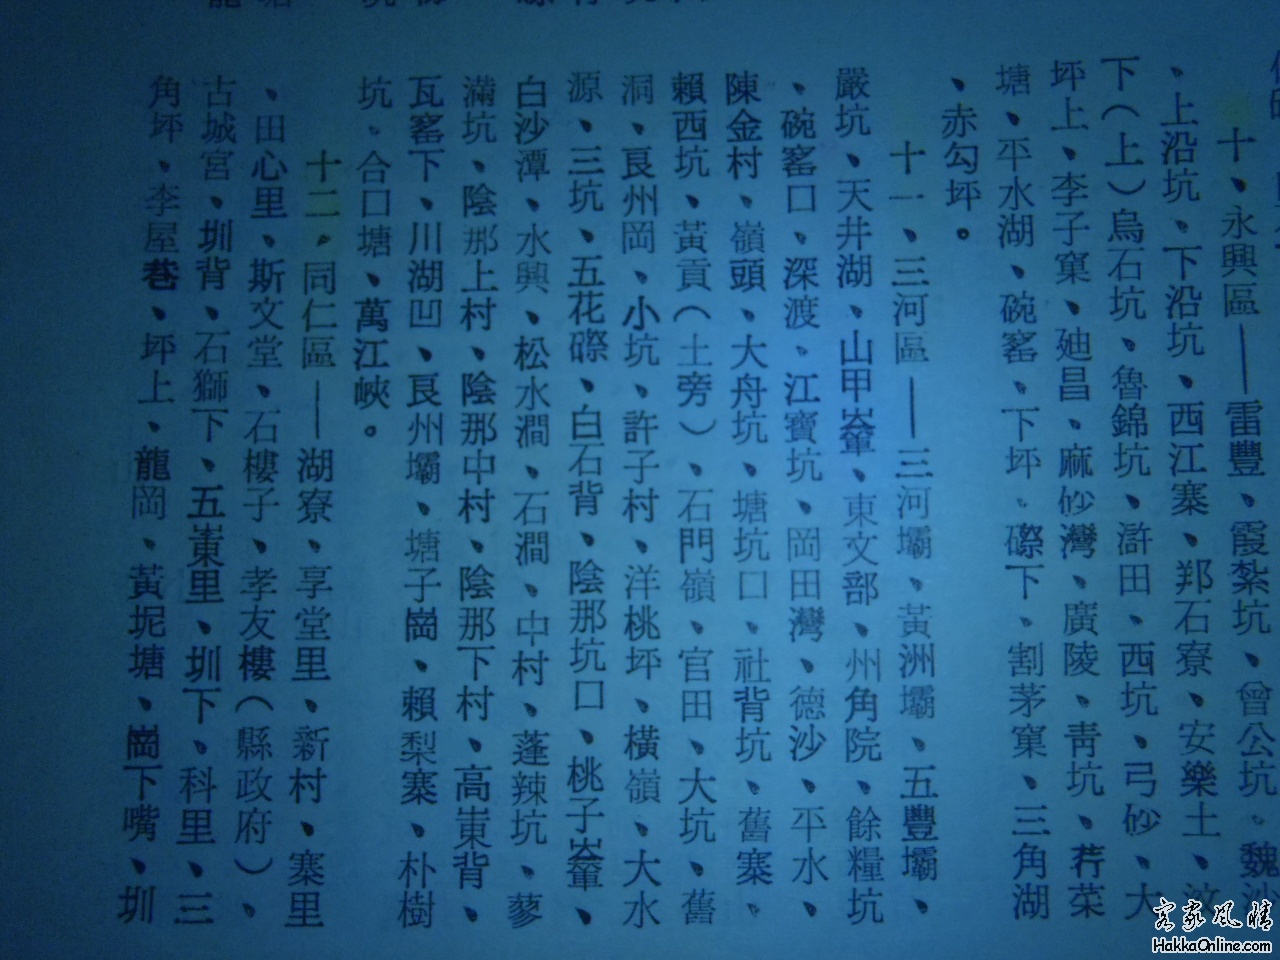 十、永興區——雷豐、霞紮坑、曾公坑、魏沙
、上沿坑、下沿坑、西江寨、邦石寮、安樂土、汶
下（上）烏石坑、魯錦坑、滸田、西坑、弓砂、大
坪上、李子窠、廸昌、麻砂灣、廣陵、靑坑、荇菜
塘、平水湖、碗窰、下坪、磜下、割茅窠、三角湖
、赤勾坪。
十一、三河區——三河壩、黃洲壩、五豐壩、
嚴坑、天井湖、山甲、東文部、州角院、餘糧坑
、碗窰口、深渡、江寶坑、岡田灣、德沙、平水、
陳金村、嶺頭、大舟坑、塘坑口、社背坑、舊寨、
賴西坑、黃貢（土旁）、石門嶺、官田、大坑、舊
洞、良州岡、小坑、許子村、洋桃坪、橫嶺、大水
源、三坑、五花磜、白石背、陰那坑口、桃子、
白沙潭、水興、松水澗、石澗、中村、蓬辣坑、蓼
滿坑、陰那上村、陰那中村、陰那下村、高崬背、
瓦窰下、川湖凹、良州壩、塘子崗、賴梨寨、朴樹
坑、合口塘、萬江峽。
十二、同仁區——湖寮、享堂里、新村、寨里
、田心里、斯文堂、石樓子、孝友樓（縣政府）、
古城宮、圳背、石獅下、五崬里、圳下、科里、三
角坪、李屋巷、坪上、龍岡、黃坭塘、崗下嘴、圳
客家風情
HakkaOnline.com